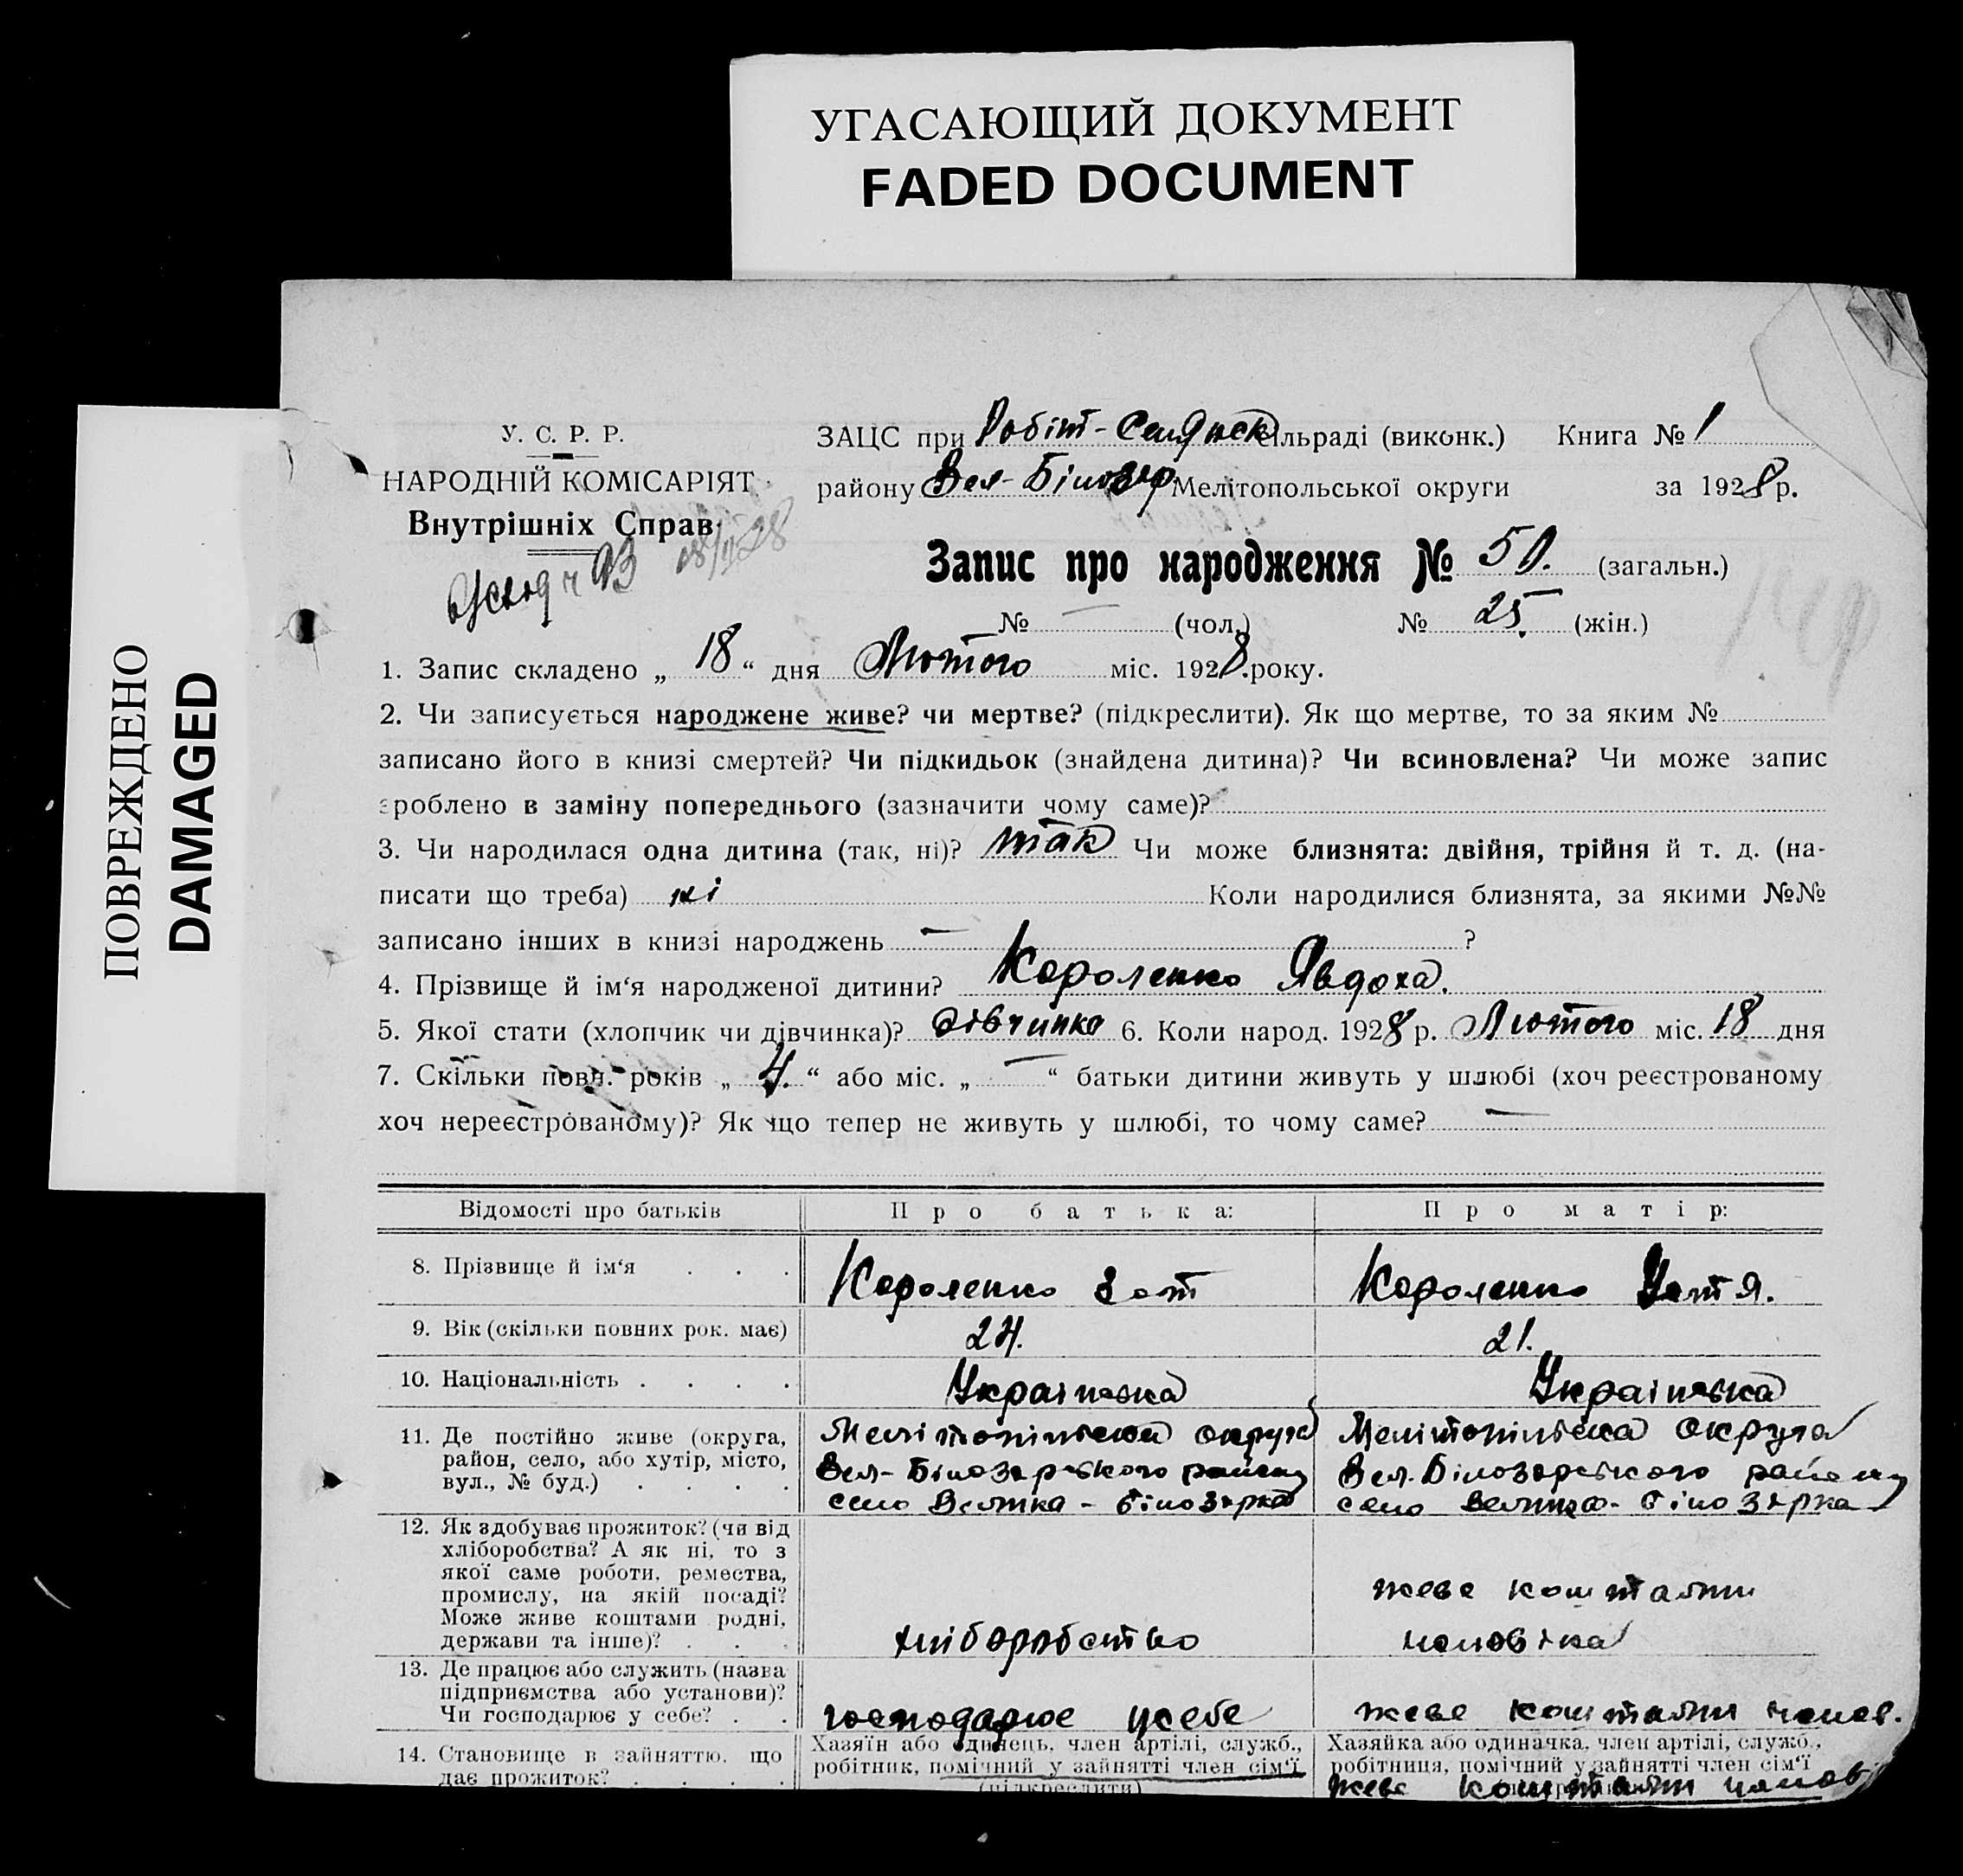 УГАСАЮЩИЙ ДОКУМЕНТ
FADED DOCUMENT
ПОВРЕЖДЕНО
DAMAGED
У. С. Р. Р.
НАРОДНІЙ КОМІСАРІЯТ
Внутрішніх Справ
ЗАЦС при Робіт-Селянськ сільраді (виконк.) Книга № 1
району Вел-Білозер Мелітопольської округи за 1928 р.
Запис про народження № 50. (загальн.)
№ — (чол.) № 25. (жін.)
1. Запис складено „ 18 “ дня Лютого міс. 1928 року.
2. Чи записується народжене живе? чи мертве? (підкреслити). Як що мертве, то за яким №
записано його в книзі смертей? Чи підкидьок (знайдена дитина)? Чи всиновлена? Чи може запис
зроблено в заміну попереднього (зазначити чому саме)?
3. Чи народилася одна дитина (так, ні)? так Чи може близнята: двійня, трійня й т. д. (на-
писати що треба) ні Коли народилися близнята, за якими №№
записано інших в книзі народжень — ?
4. Прізвище й ім‘я народженої дитини? Короленко Явдоха.
5. Якої стати (хлопчик чи дівчинка)? дівчинка 6. Коли народ. 1928 р. Лютого міс. 18 дня
7. Скільки повн. років „ 4. “ або міс. „ — “ батьки дитини живуть у шлюбі (хоч реєстрованому
хоч нереєстрованому)? Як що тепер не живуть у шлюбі, то чому саме? —
Відомості про батьків Про батька: Про матір:
8. Прізвище й ім‘я . . . Короленко Зот Короленко Устя.
9. Вік (скільки повних рок. має) 24. 21.
10. Національність . . . . Українська Українська
11. Де постійно живе (округа,
район, село, або хутір, місто,
вул., № буд.) . . . .
Мелітопільська округа
Вел-Білозерського району
село Велика-Білозерка
Мелітопільська округа
Вел-Білозерського району
село Велика-Білозерка
12. Як здобуває прожиток? (чи від
хліборобства? А як ні, то з
якої саме роботи, ремества,
промислу, на якій посаді?
Може живе коштами родні,
держави та інше)? . . .
хліборобство
живе коштами
чоловіка
13. Де працює або служить (назва
підприємства або установи)?
Чи господарює у себе? . .
господарює усебе
живе коштами чолов.
14. Становище в зайняттю, що
дає прожиток? . . . .
Хазяїн або одинець, член артілі, служб.,
робітник, помічний у зайнятті член сім‘ї
(підкреслити)
Хазяйка або одиначка, член артілі, служб.,
робітниця, помічний у зайнятті член сім‘ї
живе коштами чолов